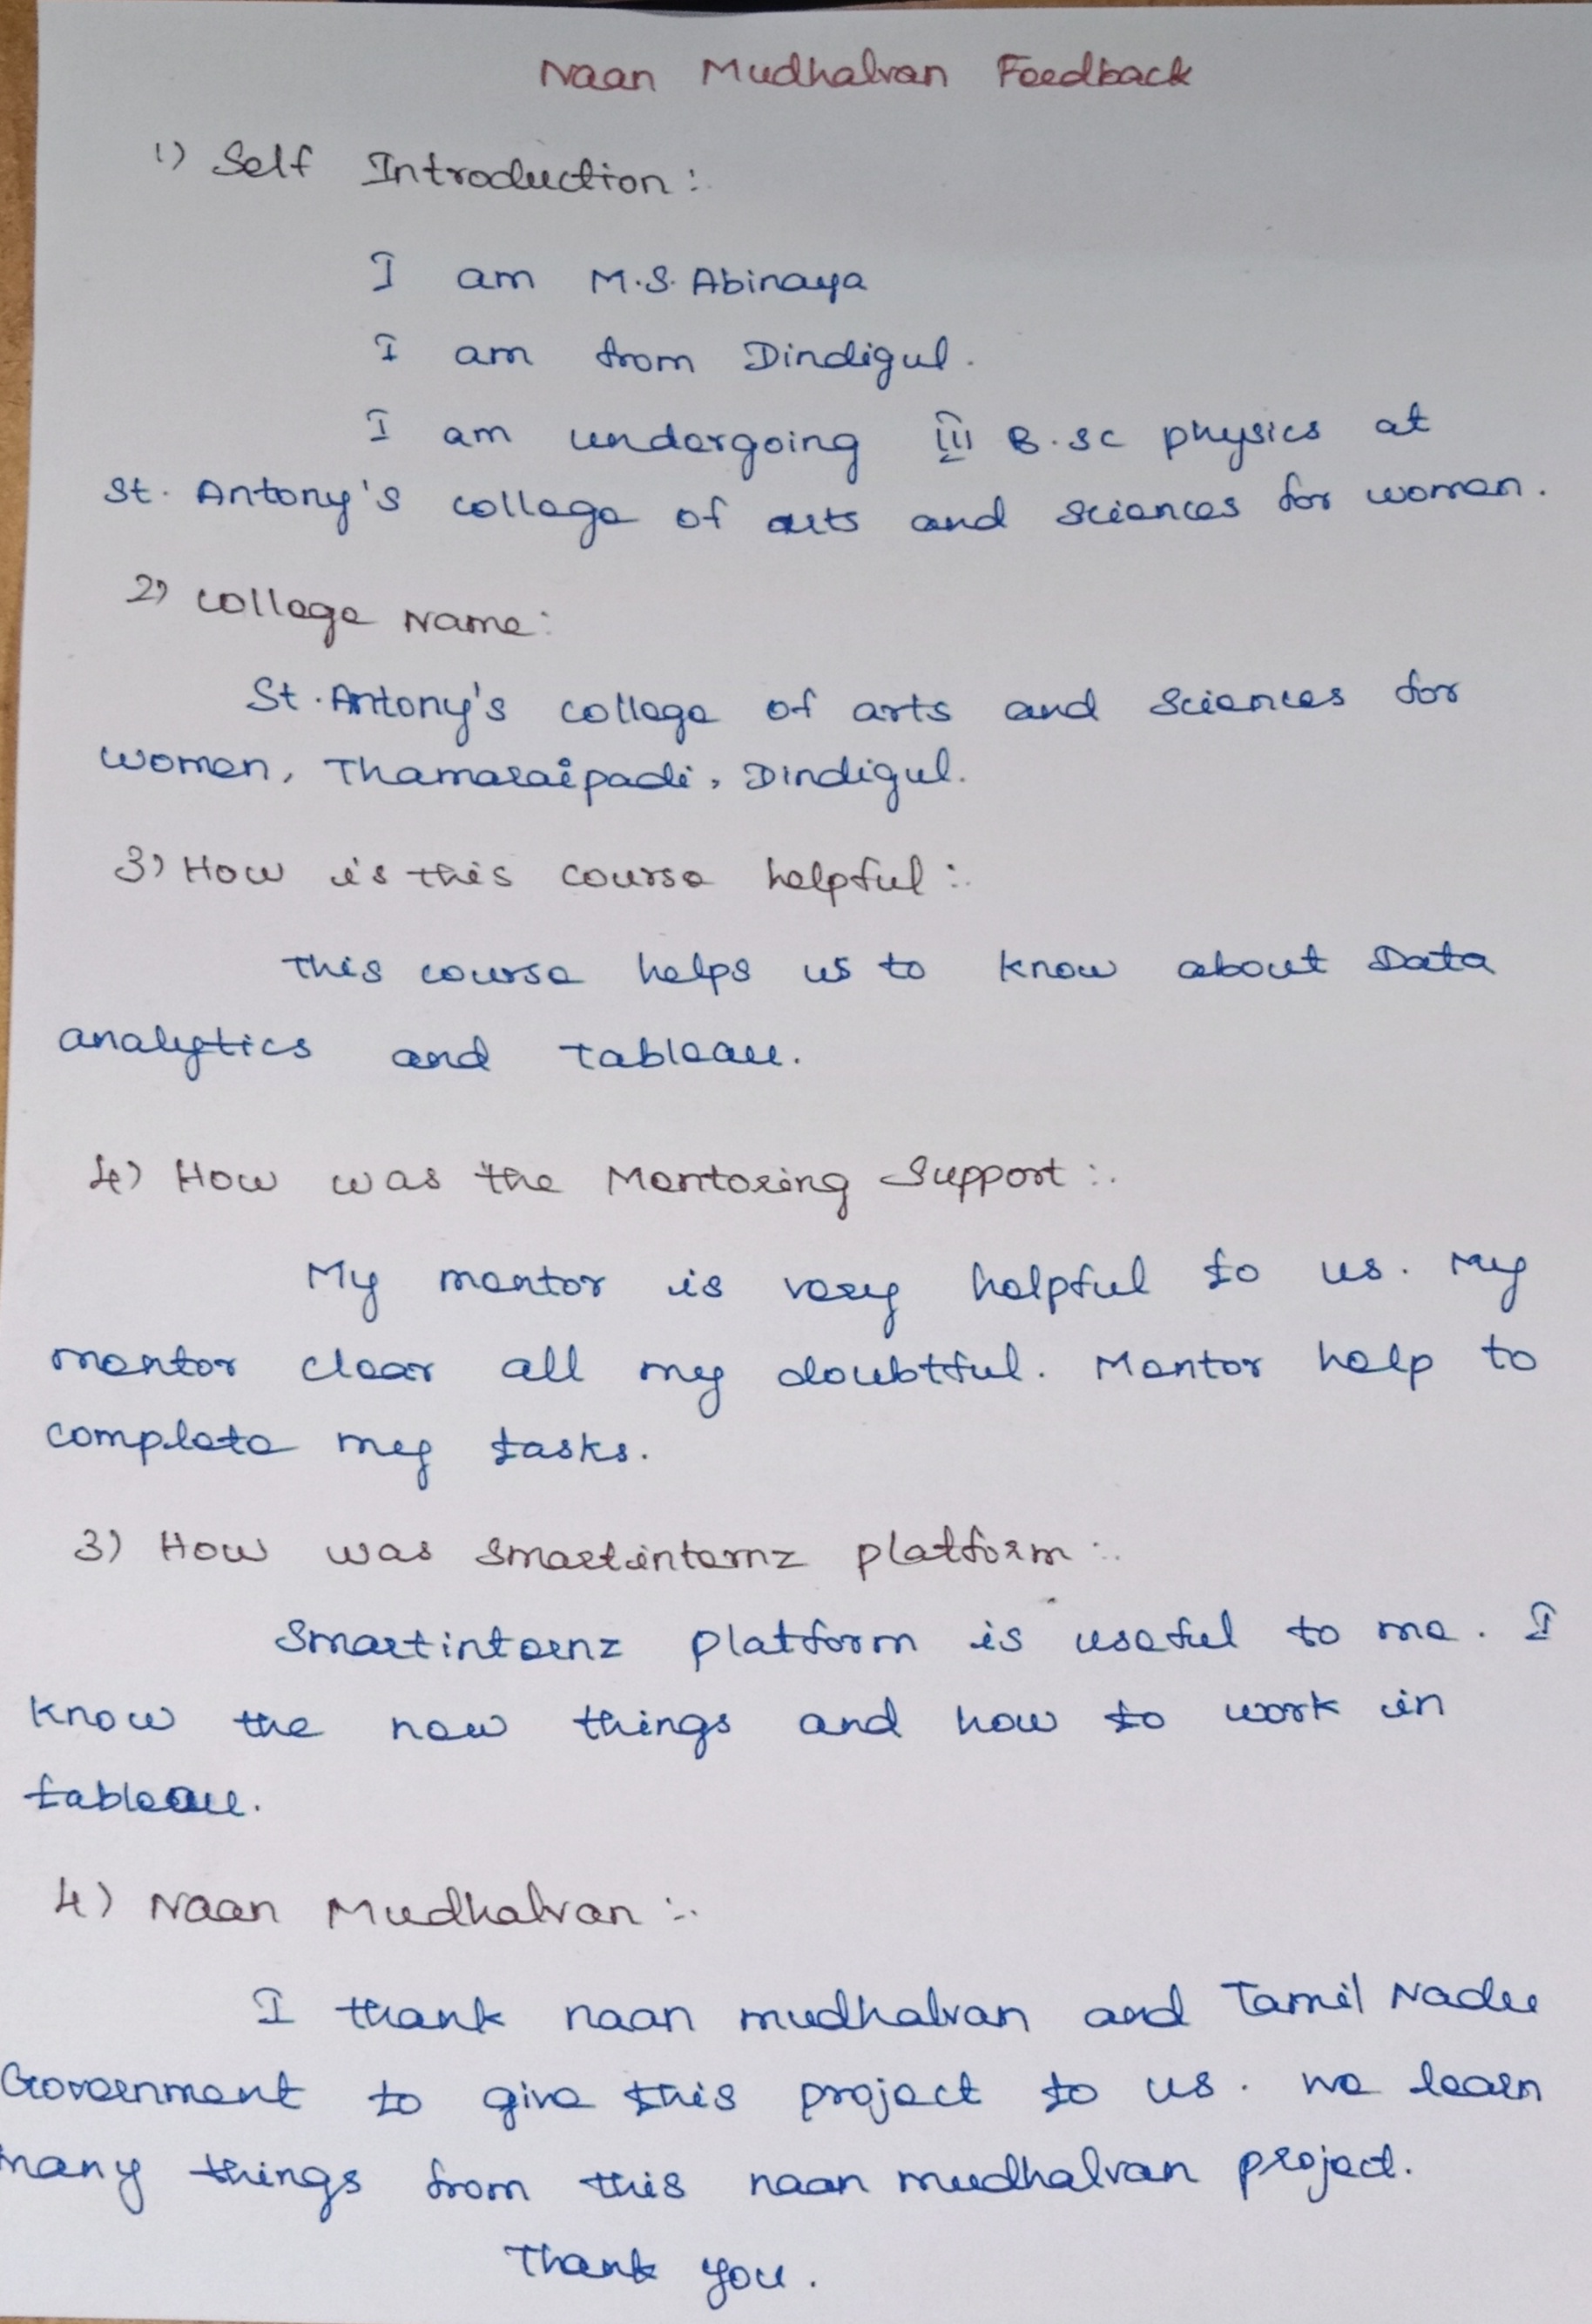 Naan Mudhalvan Feedback
1) Self Introduction:
I am M.S. Abinaya
I am from Dindigul.
I am undergoing III B.sc physics at
St. Antony's college of arts and sciences for women.
2) College Name:
St. Antony's college of arts and sciences for
women, Thamaraipadi, Dindigul.
3) How is this course helpful:.
This course helps us to know about Data
analytics and Tableau.
4) How was the Mentoring Support:.
My mentor is very helpful to us. My
mentor clear all my doubtful. Mentor help to
complete my tasks.
3) How was Smartinternz platform:.
Smartinternz platform is useful to me. I
know the new things and how to work in
tableau.
4) Naan Mudhalvan:.
I thank naan mudhalvan and Tamil Nadu
Government to give this project to us. We learn
many things from this naan mudhalvan project.
Thank you.